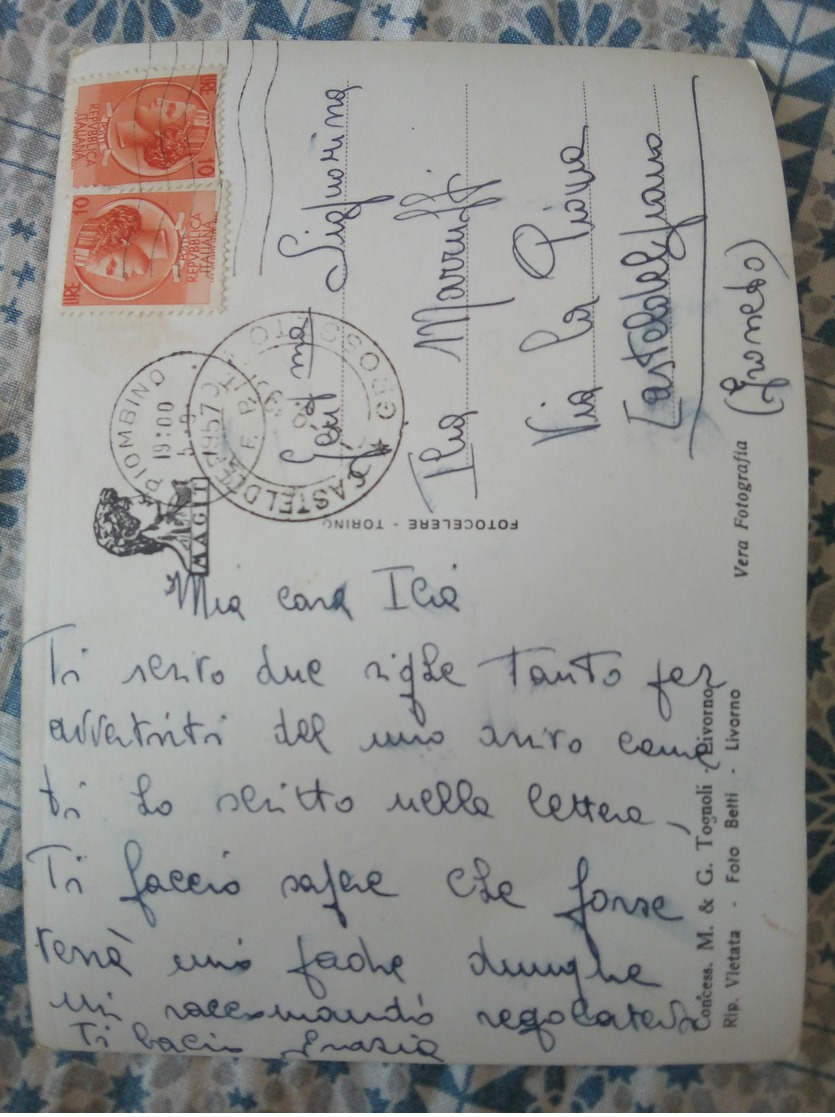 Mia cara Ilia
Ti scrivo due righe tanto per
avvertirti del mio arrivo come
ti ho scritto nella lettera,
Ti faccio sapere che forse
verrà mio padre dunque
mi raccomando regolatevi
Ti bacio Grazia
LIRE 10
REPVBBLICA
ITALIANA
10 LIRE
REPVBBLICA
ITALIANA
PIOMBINO
19:00
5.9
1957
CASTELDEL
GROSSETO
MAGIT
FOTOCELERE - TORINO
Gent ma Signorina
Ilia
Via La Piana
Casteldelpiano
(Grosseto)
Vera Fotografia
Concess. M. & G. Tognoli - Livorno
Rip. Vietata - Foto Betti - Livorno